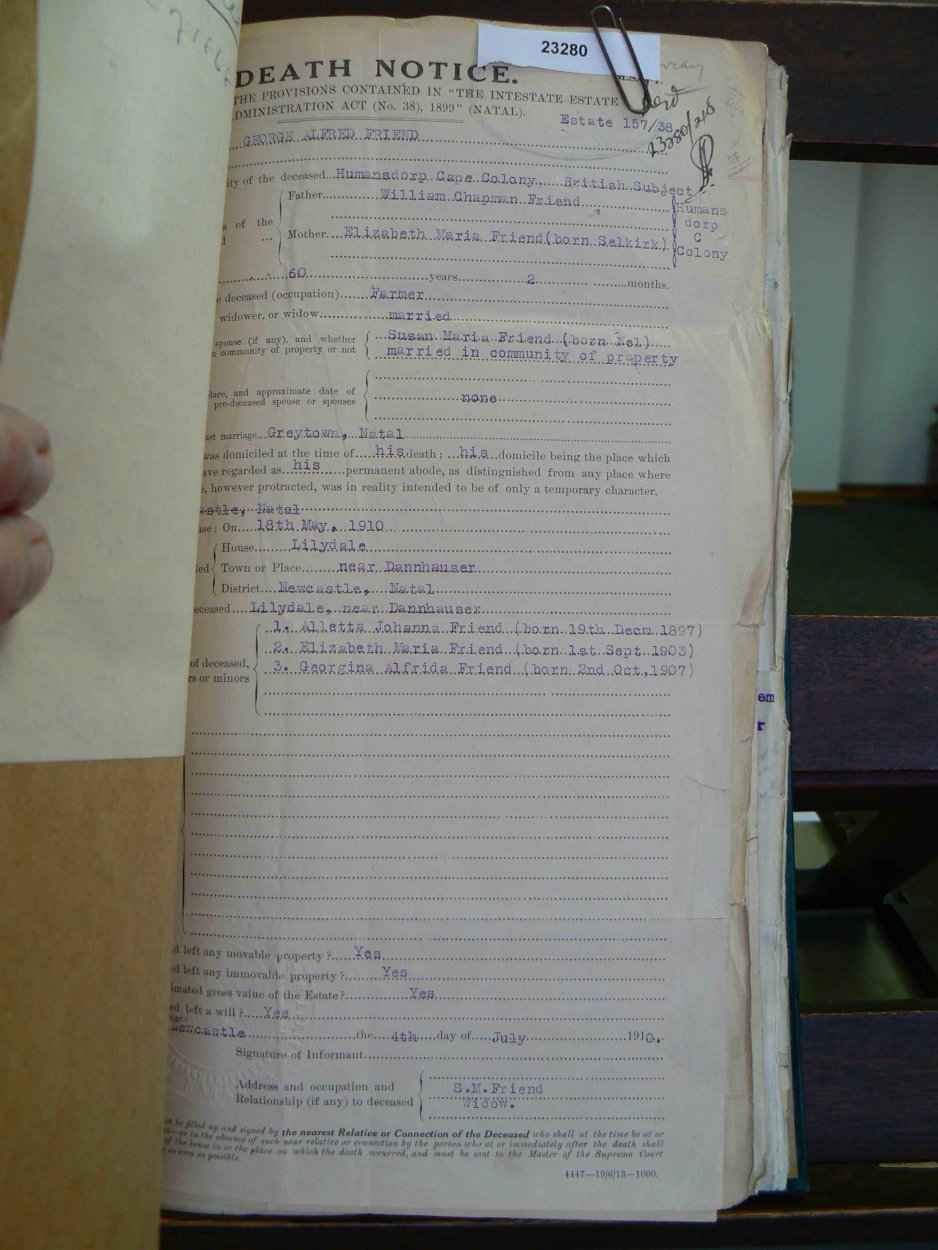 23280
DEATH NOTICE.
THE PROVISIONS CONTAINED IN "THE INTESTATE ESTATE
DMINISTRATION ACT (No. 38), 1899" (NATAL).
Estate 157/38
23280/218
GEORGE ALFRED FRIEND
ity of the deceased Humansdorp Cape Colony British Subject
Father William Chapman Friend
s of the
Mother Elizabeth Maria Friend (born Selkirk)
Humans
dorp
C
Colony
60 years 2 months.
e deceased (occupation) Farmer
widower, or widow married
spouse (if any), and whether Susan Maria Friend (born Nel)
community of property or not married in community of property
lace, and approximate date of
pre-deceased spouse or spouses none
ast marriage Greytown, Natal
was domiciled at the time of his death: his domicile being the place which
ave regarded as his permanent abode, as distinguished from any place where
e, however protracted, was in reality intended to be of only a temporary character.
astle, Natal
ase: On 18th May, 1910
House Lilydale
ied Town or Place near Dannhauser
District Newcastle, Natal
eceased Lilydale, near Dannhauser
1. Alletta Johanna Friend (born 19th Decm 1897)
2. Elizabeth Maria Friend (born 1st Sept 1903)
of deceased, 3. Georgina Alfrida Friend (born 2nd Oct, 1907)
rs or minors
em
r
d left any movable property? Yes
d left any immovable property? Yes
imated gross value of the Estate? Yes
ed left a will? Yes
Newcastle the 4th day of July 1910.
Signature of Informant
Address and occupation and S.M.Friend
Relationship (if any) to deceased Widow.
st be filled up and signed by the nearest Relative or Connection of the Deceased who shall at the time be at or
th—or in the absence of such near relative or connection by the person who at or immediately after the death shall
of the house in or the place on which the death occurred, and must be sent to the Master of the Supreme Court
as soon as possible.
4447—19/6/13—1000.